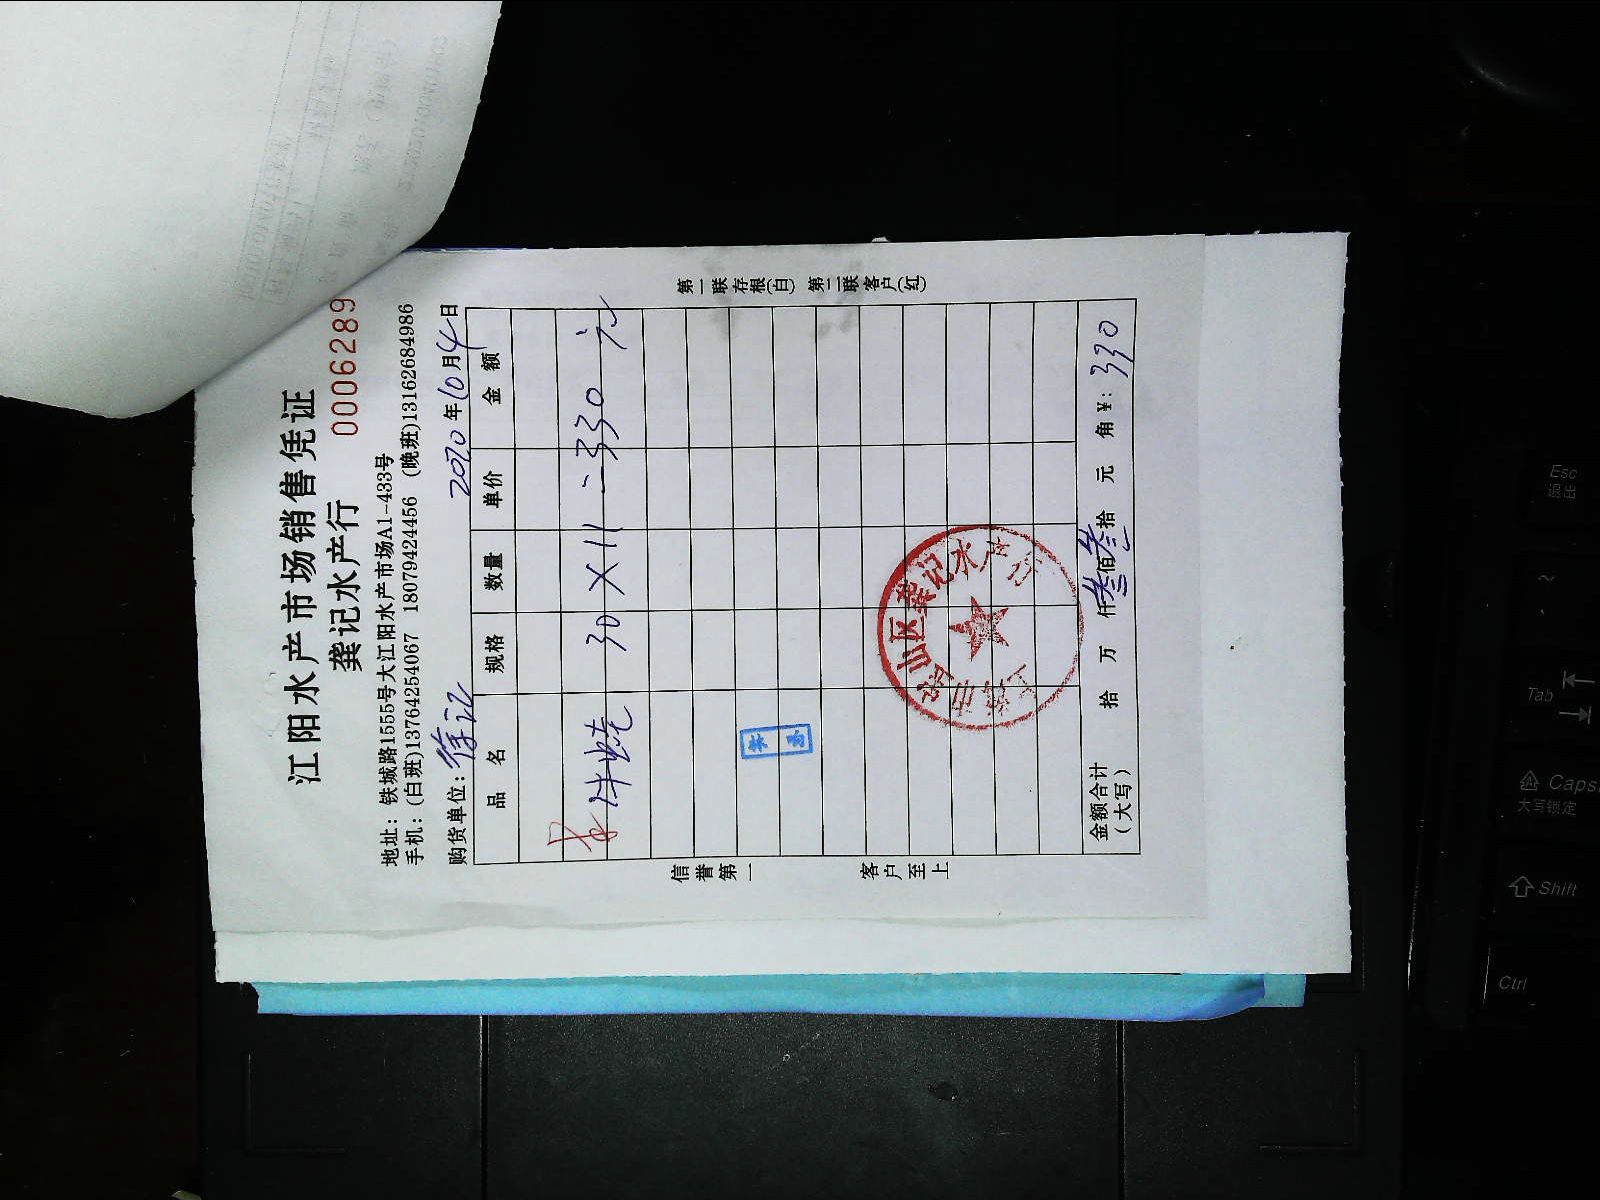 江阳水产市场销售凭证
龚记水产行
0006289
地址：铁城路1555号大江阳水产市场A1-433号
手机：(白班)13764254067 18079424456 (晚班)13162684986
购货单位：徐记 2020年10月4日
品名 规格 数量 单价 金额
30×11=330元
信誉第一 客户至上
第一联存根(白) 第二联客户(红)
上海市宝山区龚记水产行
金额合计（大写） 拾 万 仟叁佰叁拾 元 角 ¥：330
Esc
退出
~
Tab
Caps
大写锁定
Shift
Ctrl